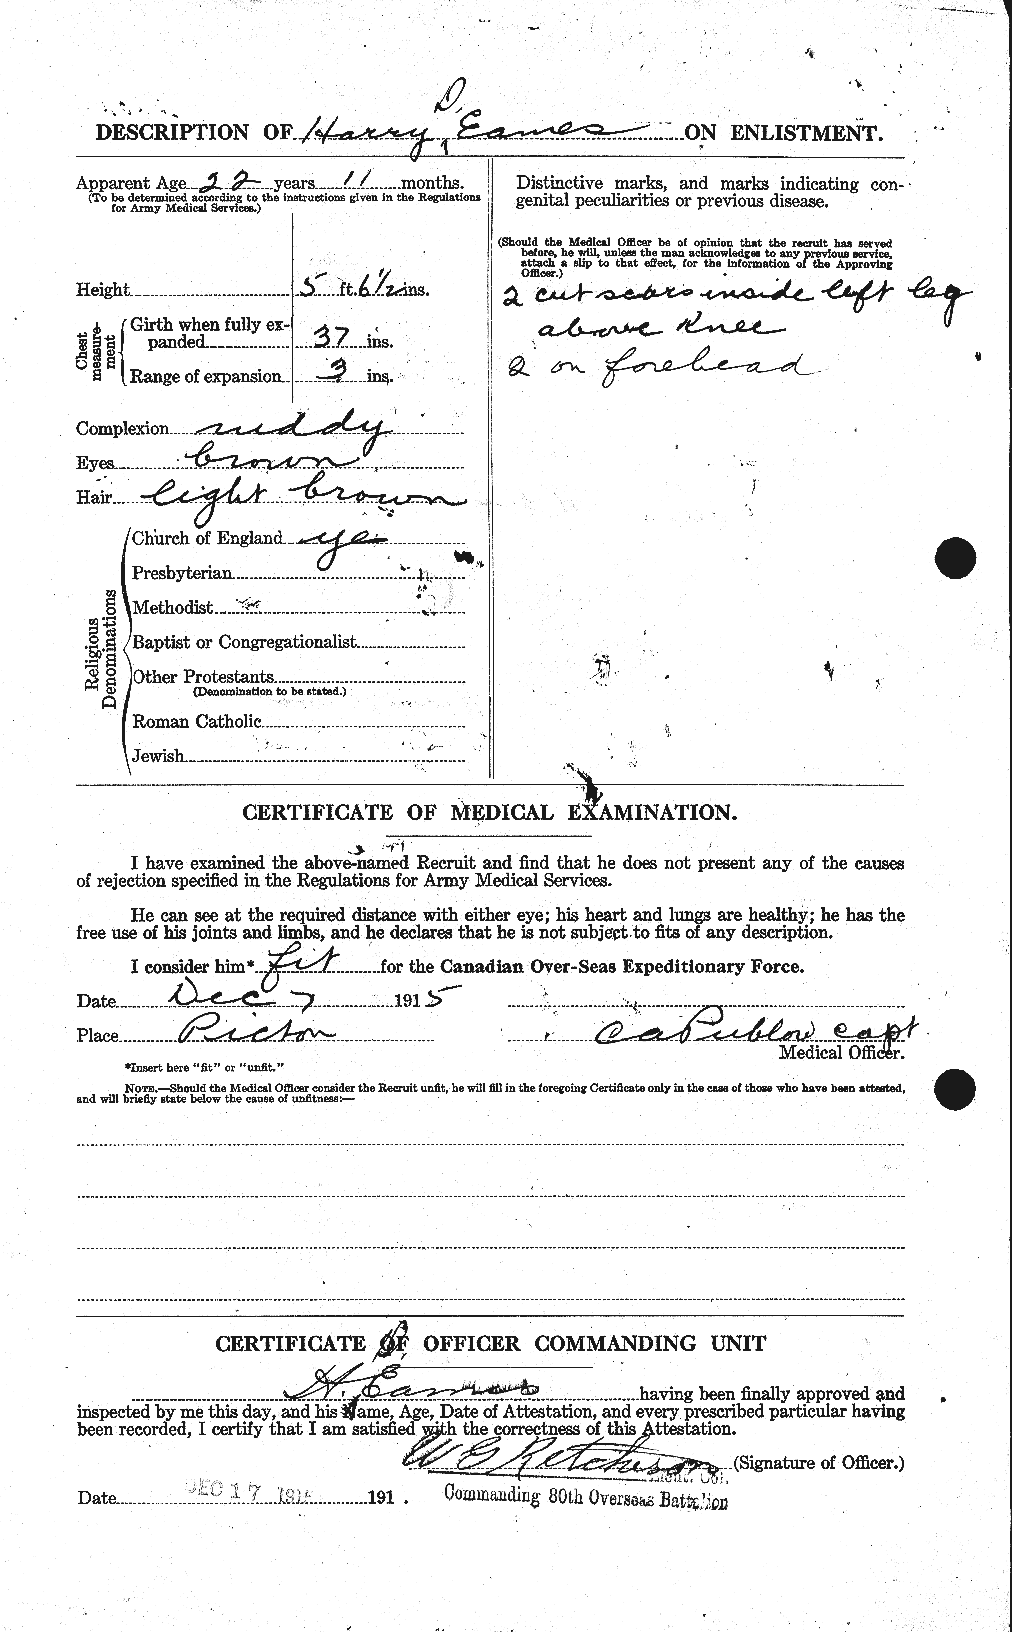 D.
DESCRIPTION OF Harry Eames ON ENLISTMENT.
Apparent Age 22 years 11 months.
(To be determined according to the instructions given in the Regulations
for Army Medical Services.)
Height 5 ft. 6 1/2 ins.
Chest measurement
Girth when fully ex-
panded 37 ins.
Range of expansion 3 ins.
Complexion ruddy
Eyes brown
Hair light brown
Religious Denominations
Church of England yes
Presbyterian
Methodist
Baptist or Congregationalist
Other Protestants
(Denomination to be stated.)
Roman Catholic
Jewish
Distinctive marks, and marks indicating con-
genital peculiarities or previous disease.
(Should the Medical Officer be of opinion that the recruit has served
before, he will, unless the man acknowledges to any previous service,
attach a slip to that effect, for the information of the Approving
Officer.)
2 cut scars inside left leg
above Knee
2 on forehead
CERTIFICATE OF MEDICAL EXAMINATION.
I have examined the above-named Recruit and find that he does not present any of the causes
of rejection specified in the Regulations for Army Medical Services.
He can see at the required distance with either eye; his heart and lungs are healthy; he has the
free use of his joints and limbs, and he declares that he is not subject to fits of any description.
I consider him* fit for the Canadian Over-Seas Expeditionary Force.
Date Dec 7 1915
Place Picton
CA Publow capt
Medical Officer.
*Insert here "fit" or "unfit."
NOTE.—Should the Medical Officer consider the Recruit unfit, he will fill in the foregoing Certificate only in the case of those who have been attested,
and will briefly state below the cause of unfitness:—
CERTIFICATE OF OFFICER COMMANDING UNIT
H. Eames having been finally approved and
inspected by me this day, and his Name, Age, Date of Attestation, and every prescribed particular having
been recorded, I certify that I am satisfied with the correctness of this Attestation.
W G Ketcheson (Signature of Officer.)
Lieut. Col.
Date DEC 17 1915 191 .
Commanding 80th Overseas Battalion